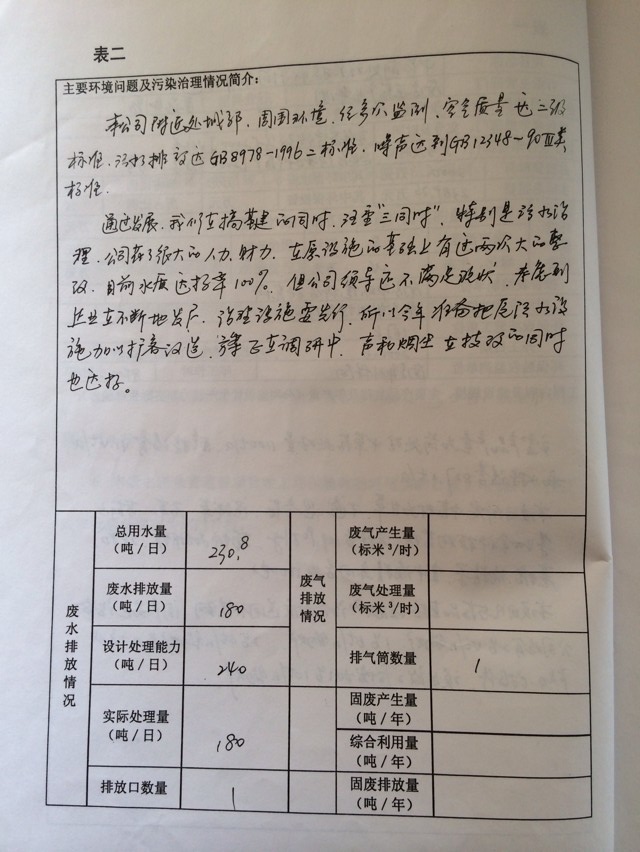 表二
主要环境问题及污染治理情况简介：
本公司附近处城郊，周围环境，经多次监测，空气质量达二级
标准，污水排放达GB8978-1996二标准，噪声达到GB12348-90Ⅲ类
标准。
通过发展，我们在搞基建的同时，注重"三同时"，特别是污水治
理，公司花了很大的人力、财力，在原设施的基础上有过两次大的整
改，目前水质达标率100%。但公司领导还不满足现状，考虑到
企业在不断地发展，治理设施要先行，所以今年准备把原污水设
施加以扩容改造，方案正在调研中，声和烟尘在技改的同时
也达标。
废水排放情况
总用水量
（吨/日）
230.8
废水排放量
（吨/日）
180
设计处理能力
（吨/日）
240
实际处理量
（吨/日）
180
排放口数量
1
废气排放情况
废气产生量
（标米³/时）
废气处理量
（标米³/时）
排气筒数量
1
固废产生量
（吨/年）
综合利用量
（吨/年）
固废排放量
（吨/年）